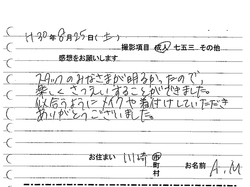 H30年8月25日(土)
撮影項目 成人 七五三 その他
感想をお願いします
スタッフのみなさまが明るかったので、
楽しくさつえいすることができました。
似合うようにメイクや着付けしていただき
ありがとうございました。
お住まい 川崎 市 町 村 お名前 A.M